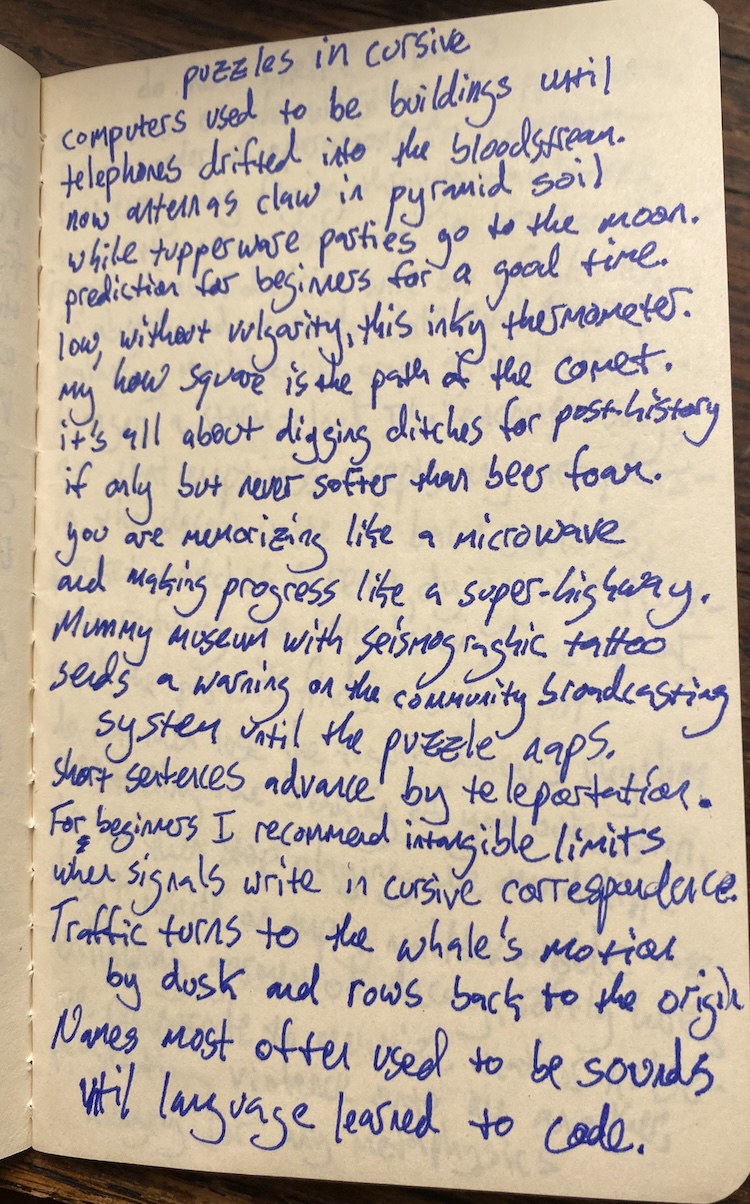 puzzles in cursive
computers used to be buildings until
telephones drifted into the bloodstream.
now antennas claw in pyramid soil
while tupperware parties go to the moon.
prediction for beginners for a good time.
low, without vulgarity, this inky thermometer.
my how square is the path of the comet.
it's all about digging ditches for post-history
if only but never softer than beer foam.
you are memorizing like a microwave
and making progress like a super-highway.
Mummy museum with seismographic tattoo
sends a warning on the community broadcasting
system until the puzzle naps.
short sentences advance by teleportation.
For beginners I recommend intangible limits
when signals write in cursive correspondence.
Traffic turns to the whale's motion
by dusk and rows back to the origin
Names most often used to be sounds
until language learned to code.